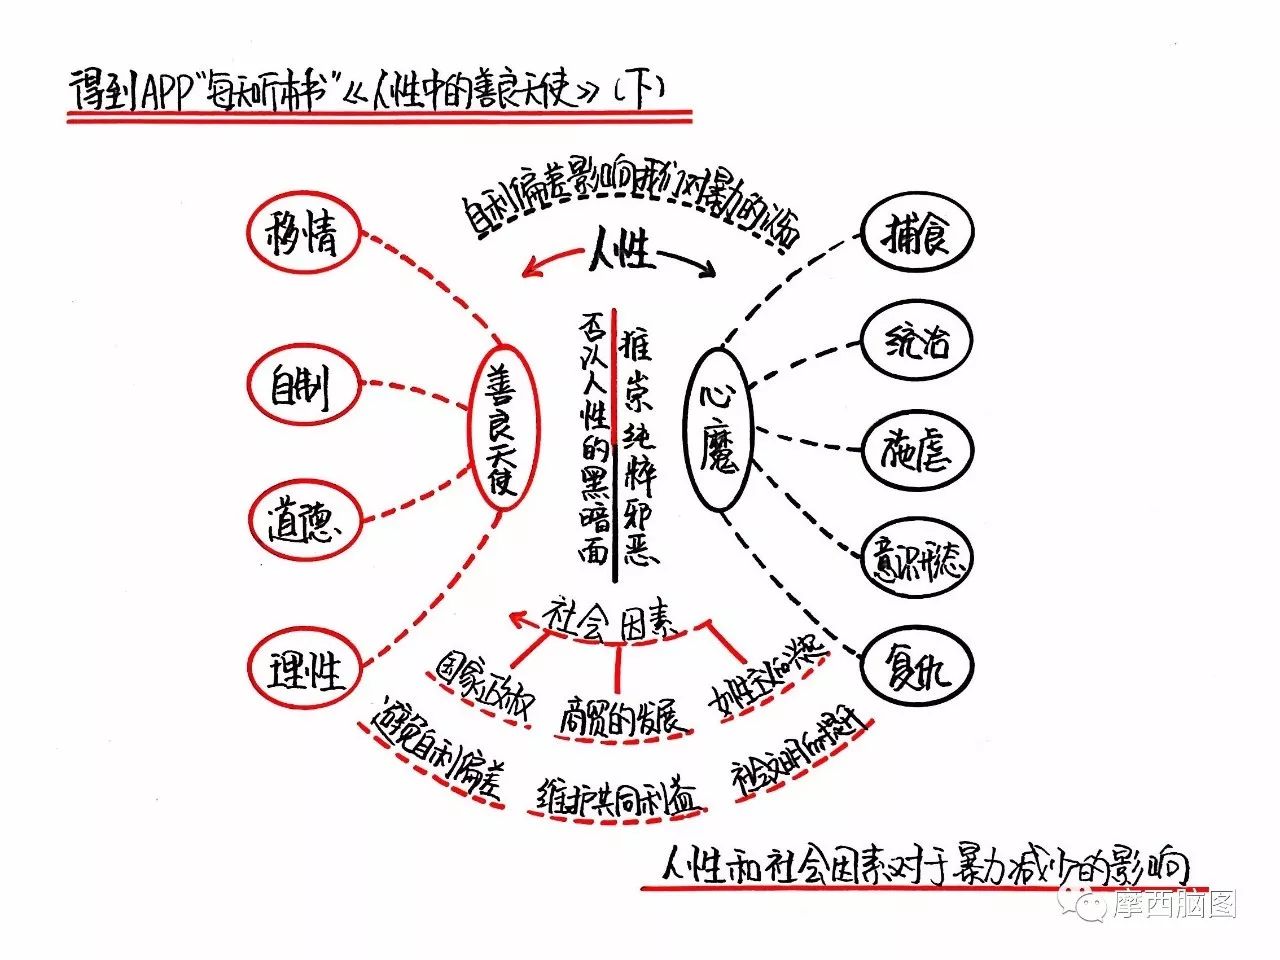 得到APP"每天听本书"《人性中的善良天使》(下)
自利偏差影响我们对暴力的认知
人性
移情
自制
道德
理性
善良天使
否认人性的黑暗面
推崇纯粹邪恶
心魔
捕食
统治
施虐
意识形态
复仇
社会因素
国家政权
商贸的发展
女性主义的兴起
避免自利偏差
维护共同利益
社会文明的提升
人性和社会因素对于暴力减少的影响
摩西脑图